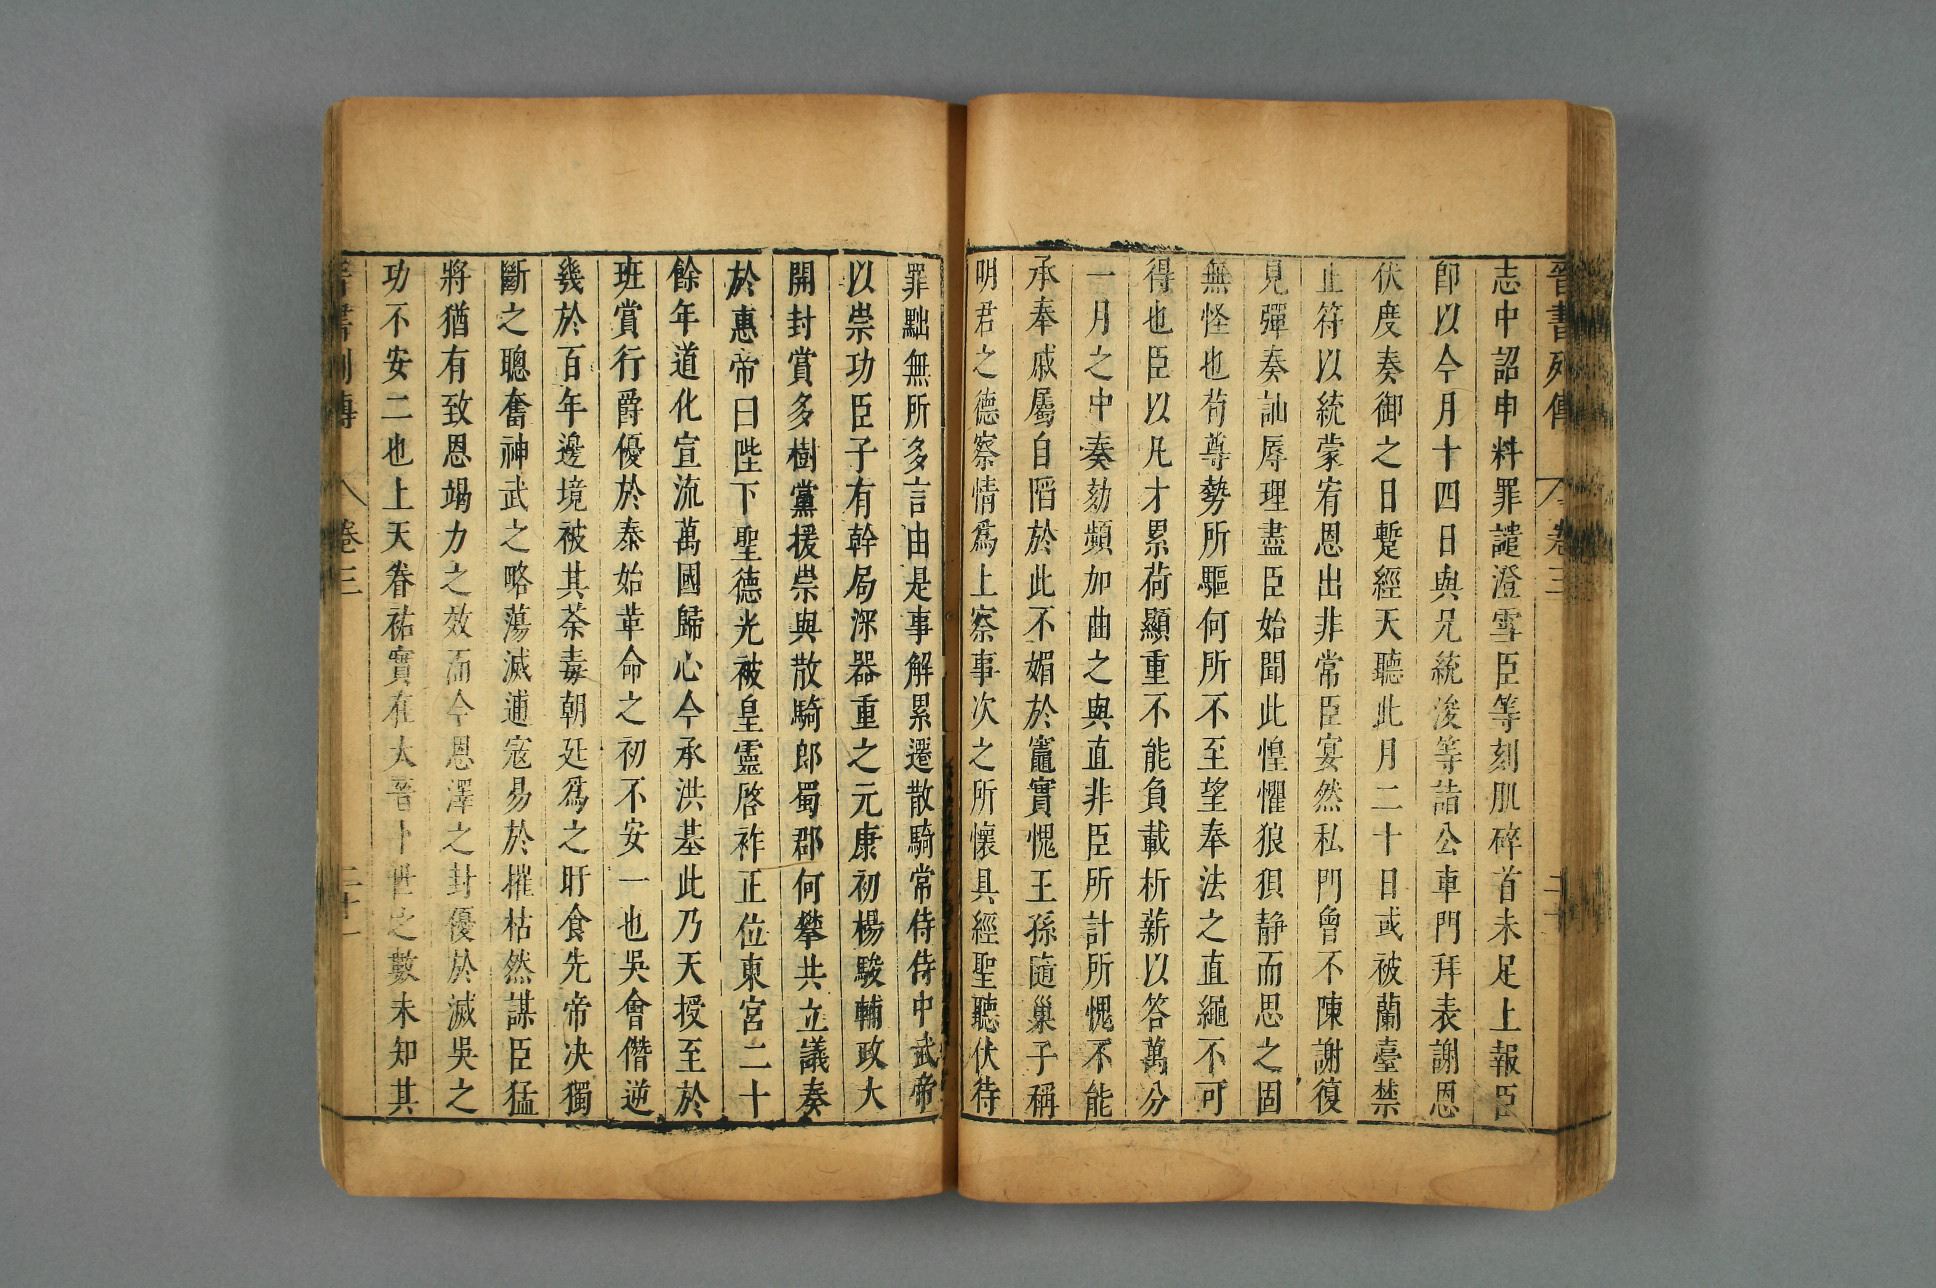 晉書列傳 卷三 二十
志中詔申料罪譴澄雪臣等刻肌碎首未足上報臣
即以今月十四日與兄統浚等詣公車門拜表謝恩
伏度奏御之日蹔經天聽此月二十日或被蘭臺禁
止符以統蒙宥恩出非常臣宴然私門曾不陳謝復
見彈奏訕辱理盡臣始聞此惶懼狼狽靜而思之固
無怪也苟尊勢所驅何所不至望奉法之直繩不可
得也臣以凡才累荷顯重不能負載析薪以答萬分
一月之中奏劾頻加曲之與直非臣所計所愧不能
承奉戚屬自陷於此不媚於竈實愧王孫隨巢子稱
明君之德察情爲上察事次之所懷具經聖聽伏待
罪黜無所多言由是事解累遷散騎常侍侍中武帝
以崇功臣子有幹局深器重之元康初楊駿輔政大
開封賞多樹黨援崇與散騎郎蜀郡何攀共立議奏
於惠帝曰陛下聖德光被皇靈啓祚正位東宮二十
餘年道化宣流萬國歸心今承洪基此乃天授至於
班賞行爵優於泰始革命之初不安一也吳會僭逆
幾於百年邊境被其荼毒朝廷爲之旰食先帝决獨
斷之聰奮神武之略蕩滅逋寇易於摧枯然謀臣猛
將猶有致思竭力之效而今恩澤之封優於滅吳之
功不安二也上天眷祐實在大晉卜世之數未知其
晉書列傳 卷三 二十一